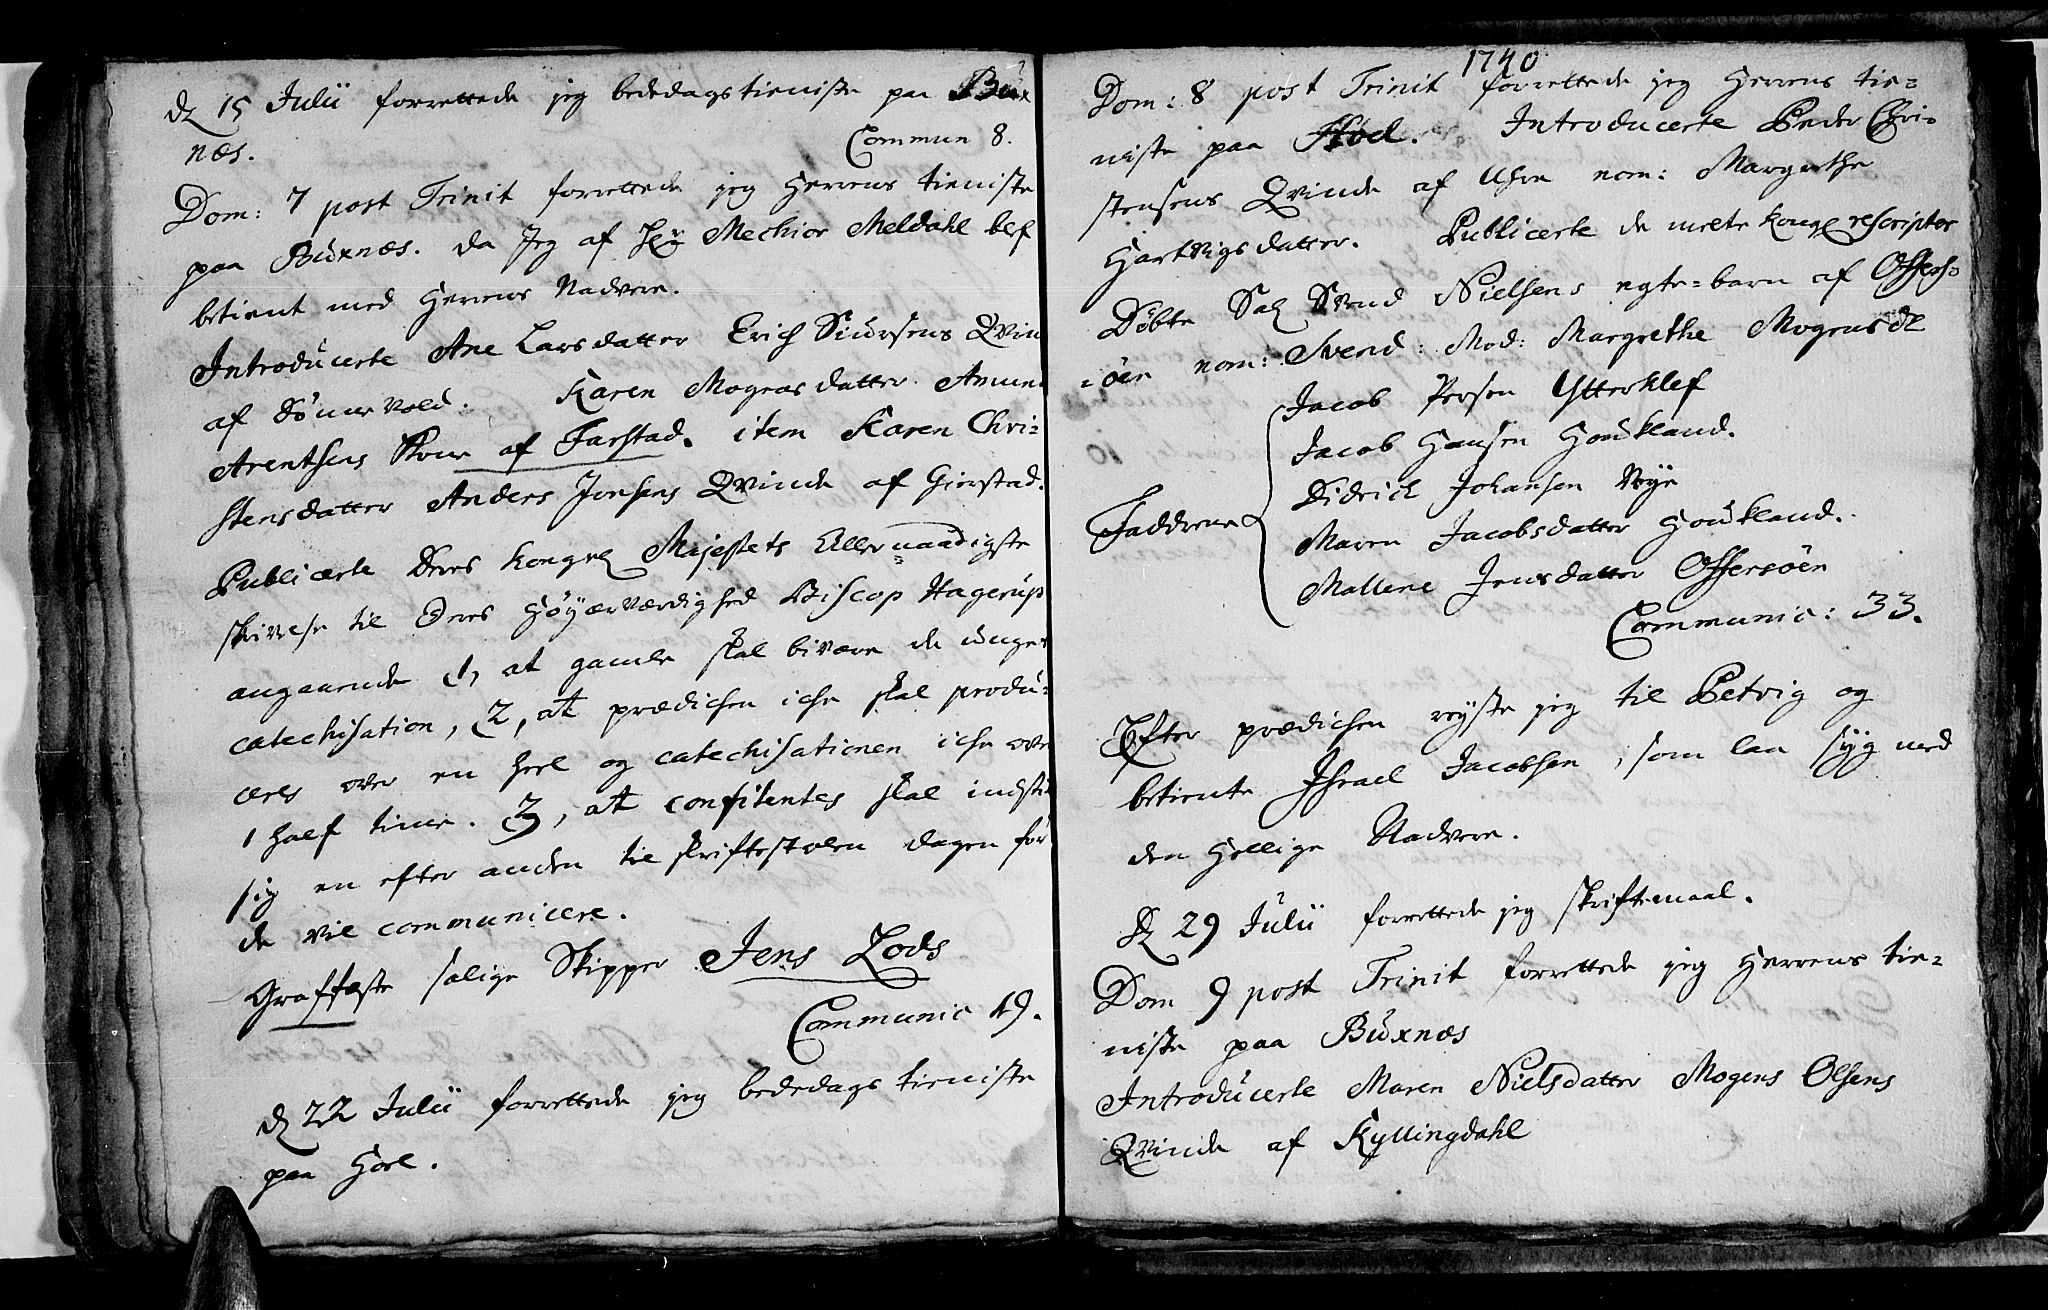 d 15 Julii forrettede jeg bededagstieniste paa Bux
næs. Commun 8.
Dom: 7 post Trinit forrettede jeg Herrens tieniste
paa Buxnæs. da Jeg af Hr Mechior Meldahl blef
betient med Herrens Nadvere.
Introducerte Ane Larsdatter Erich Siursens Qvin
af Sømervold. Karen Mogensdatter Amun
Arentsens Kone af Farstad. item Karen Chri-
stensdatter Anders Jonsens Qvinde af Gierstad.
Publicerte Deres Kongel Majestets Allernaadigste
skrivelse til Deres Høyærværdighed Biscop Hagerup
angaaende 1, at gamle skal bivære de unges
catechisation, 2, at prædichen iche skal produ-
ceres over en heel og catechisationen iche over
1 half time. 3, at confitentes skal indstil
sig en efter anden til skriftestolen dagen før
de vil communicere.
Graffæste salige Skipper Jens Lods
Communic 19.
d 22 Julii forrettede jeg bededags tieniste
paa Hoel.
1740
Dom: 8 post Trinit forrettede jeg Herrens tie-
niste paa Hoel. Introducerte Peder Chri-
stensens Qvinde af Uhre nom: Margrethe
Hartvigsdatter. Publicerte de melte kongl rescripter
Døbte Sal Svend Nielsens egte-barn af Offers-
-øen nom: Svend: Mod: Margrethe Mogensdl
Jacob Persen Ytterklef
Jacob Hansen Houkland.
Didrich Johansen Voye
Faddrene
Maren Jacobsdatter Houkland.
Mallene Jensdatter Offersøen
Communic: 33.
Efter prædichen reyste jeg til Petvig og
betiente Jsrael Jacobsen, som laa syg med
den Hellige Nadvere.
D 29 Julii forrettede jeg skriftemaal.
Dom 9 post Trinit forrettede jeg Herrens tie-
niste paa Buxnæs
Introducerte Maren Nielsdatter Mogens Olsens
Qvinde af Kyllingdahl